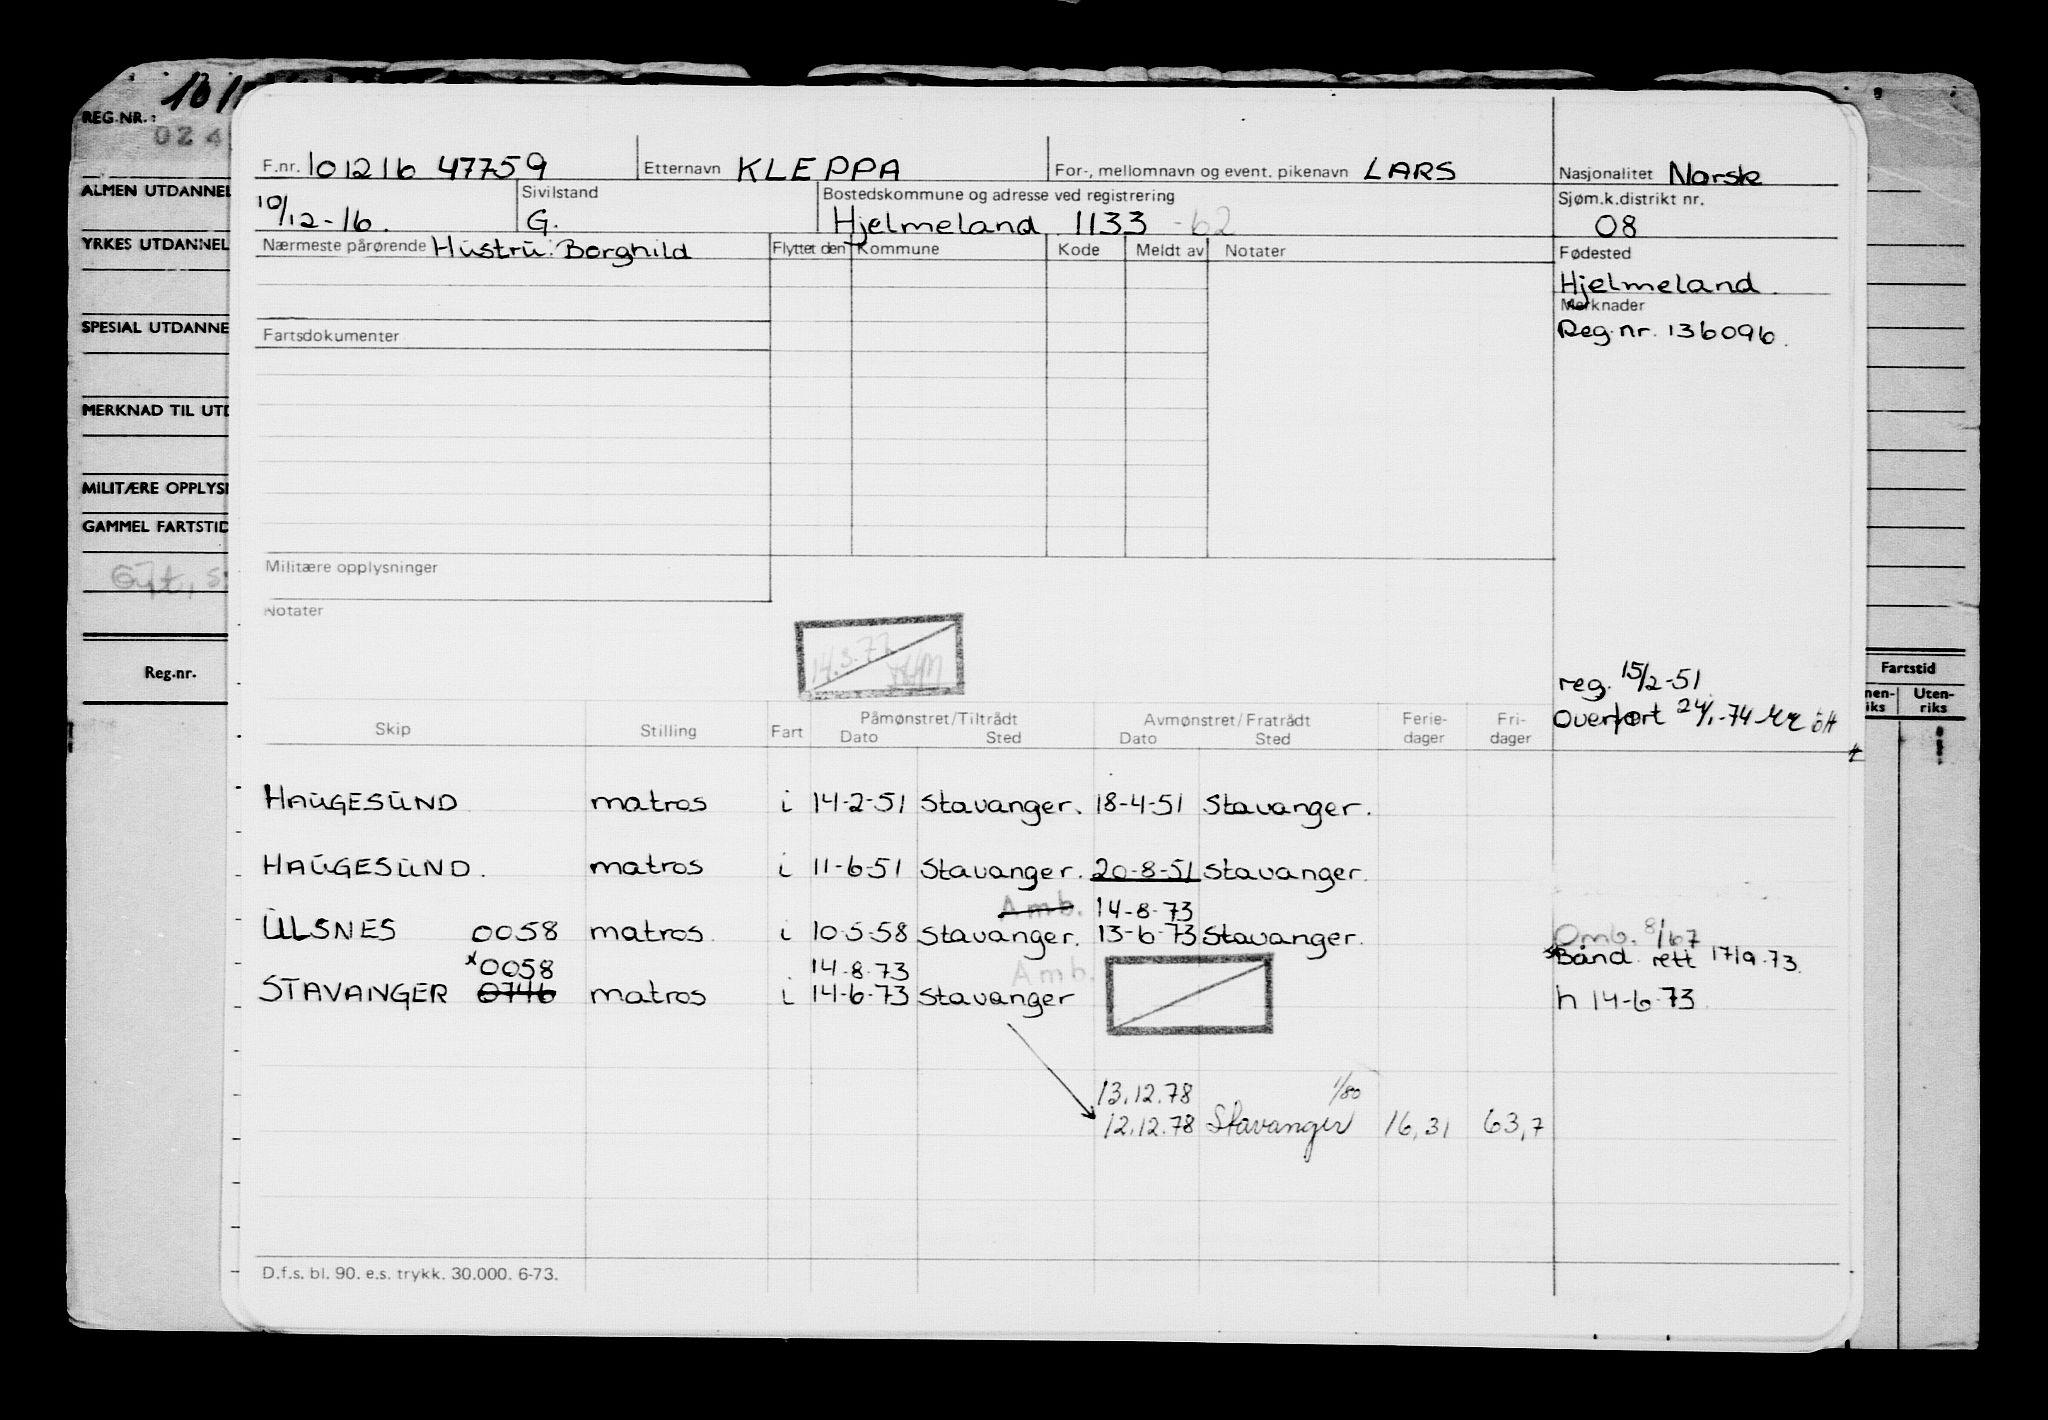 REG.NR.:
F.nr. 101216 47759 Etternavn KLEPPA For-, mellomnavn og event. pikenavn LARS Nasjonalitet Norsk
ALMEN UTDANNEL
Sivilstand Bostedskommune og adresse ved registrering Sjøm.k.distrikt nr.
10/12-16. G. Hjelmeland 1133 -62 08
YRKES UTDANNEL
Nærmeste pårørende Hustru: Borghild Flyttet den Kommune Kode Meldt av Notater Fødested
Hjelmeland.
Merknader
SPESIAL UTDANNE
Fartsdokumenter Reg.nr. 136096.
MERKNAD TIL UTD
MILITÆRE OPPLYSN
GAMMEL FARTSTID
Militære opplysninger
Notater
14.3.77
Reg.nr. Fartstid
reg. 15/2-51
Uten-
riks
Overført 24/1-74
Påmønstret/Tiltrådt Avmønstret/Fratrådt Ferie- Fri-
Skip Stilling Fart Dato Sted Dato Sted dager dager
HAUGESUND matros i 14-2-51 Stavanger. 18-4-51 Stavanger.
HAUGESUND. matros i 11-6-51 Stavanger. 20-8-51 Stavanger.
Amb. 14-8-73
ULSNES 0058 matros. i 10-5-58 Stavanger. 13-6-73 Stavanger. Omb. 8/67
Bånd rett 17/9-73.
*0058 14-8-73 Amb.
STAVANGER 0746 matros i 14-6-73 Stavanger h 14-6-73.
13.12.78 1/80
12.12.78 Stavanger 16,31 63,7
D.f.s. bl. 90. e.s. trykk. 30.000. 6-73.